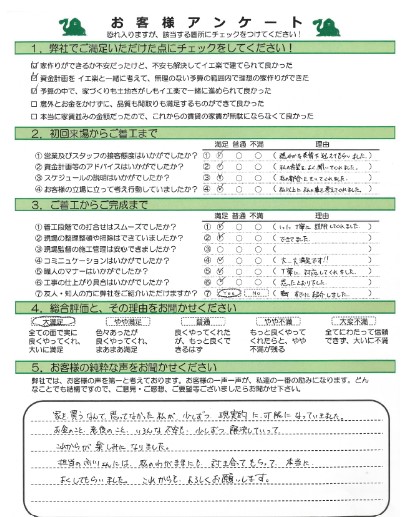 お客様アンケート
恐れ入りますが、該当する箇所にチェックをつけてください!
1. 弊社でご満足いただけた点にチェックをしてください!
☑ 家作りができるか不安だったけど、不安も解決してイエ楽で建てられて良かった
☑ 資金計画を イエ楽と一緒に考えて、無理のない予算の範囲内で理想の家作りができた
☑ 予算の中で、家づくりも土地さがしもイエ楽で一緒に進められて良かった
□ 意外とお金をかけずに、品質も間取りも満足するものができて良かった
□ 本当に家賃並みの金額だったので、これからの賃貸の家賃が無駄にならなくて良かった
2. 初回来場からご着工まで
満足 普通 不満 理由
①営業及びスタッフの接客態度はいかがでしたか? ①
②資金計画等のアドバイスはいかがでしたか? ②
③スケジュールの説明はいかがでしたか? ③
④お客様の立場に立って考え行動していましたか? ④
3. ご着工からご完成まで
満足 普通 不満 理由
①着工段階での打合せはスムーズでしたか? ①
②現場の整理整頓や掃除はできていましたか? ② できてました。
③現場監督の施工管理は安心できましたか? ③
④コミュニケーションはいかがでしたか? ④ 大満足です!!
⑤職人のマナーはいかがでしたか? ⑤ 丁寧に対応してくれました。
⑥工事の仕上がり具合はいかがでしたか? ⑥
⑦友人・知人の方に弊社をご紹介いただけますか? ⑦ YES NO
4. 総合評価と、その理由をお聞かせください
大満足 やや満足 普通 やや不満 大変不満
全ての面で実に良くやってくれ、大いに満足
色々あったが良くやってくれ、まあまあ満足
良くやってくれたが、もっと良くできるはず
もっと良くやってくれたらと、やや不満が残る
全てにわたって信頼できず、大いに不満
5. お客様の純粋な声をお聞かせください
弊社では、お客様の声を第一と考えております。お客様の一声一声が、私達の一番の励みになります。どんな
ことでも結構ですので、ご意見・ご感想、ご要望等ございましたらお聞かせ下さい。
家を買うなんて思ってなかった私が、少しずつ現実的に可能になっていきました。
お金のこと、老後のこと、いろんな不安も少しずつ解決していって、
これからが楽しみになりました。
担当の さんには、私のわがままにも付き合ってもらって、本当に
よくしてもらいました。これからもよろしくお願いします。